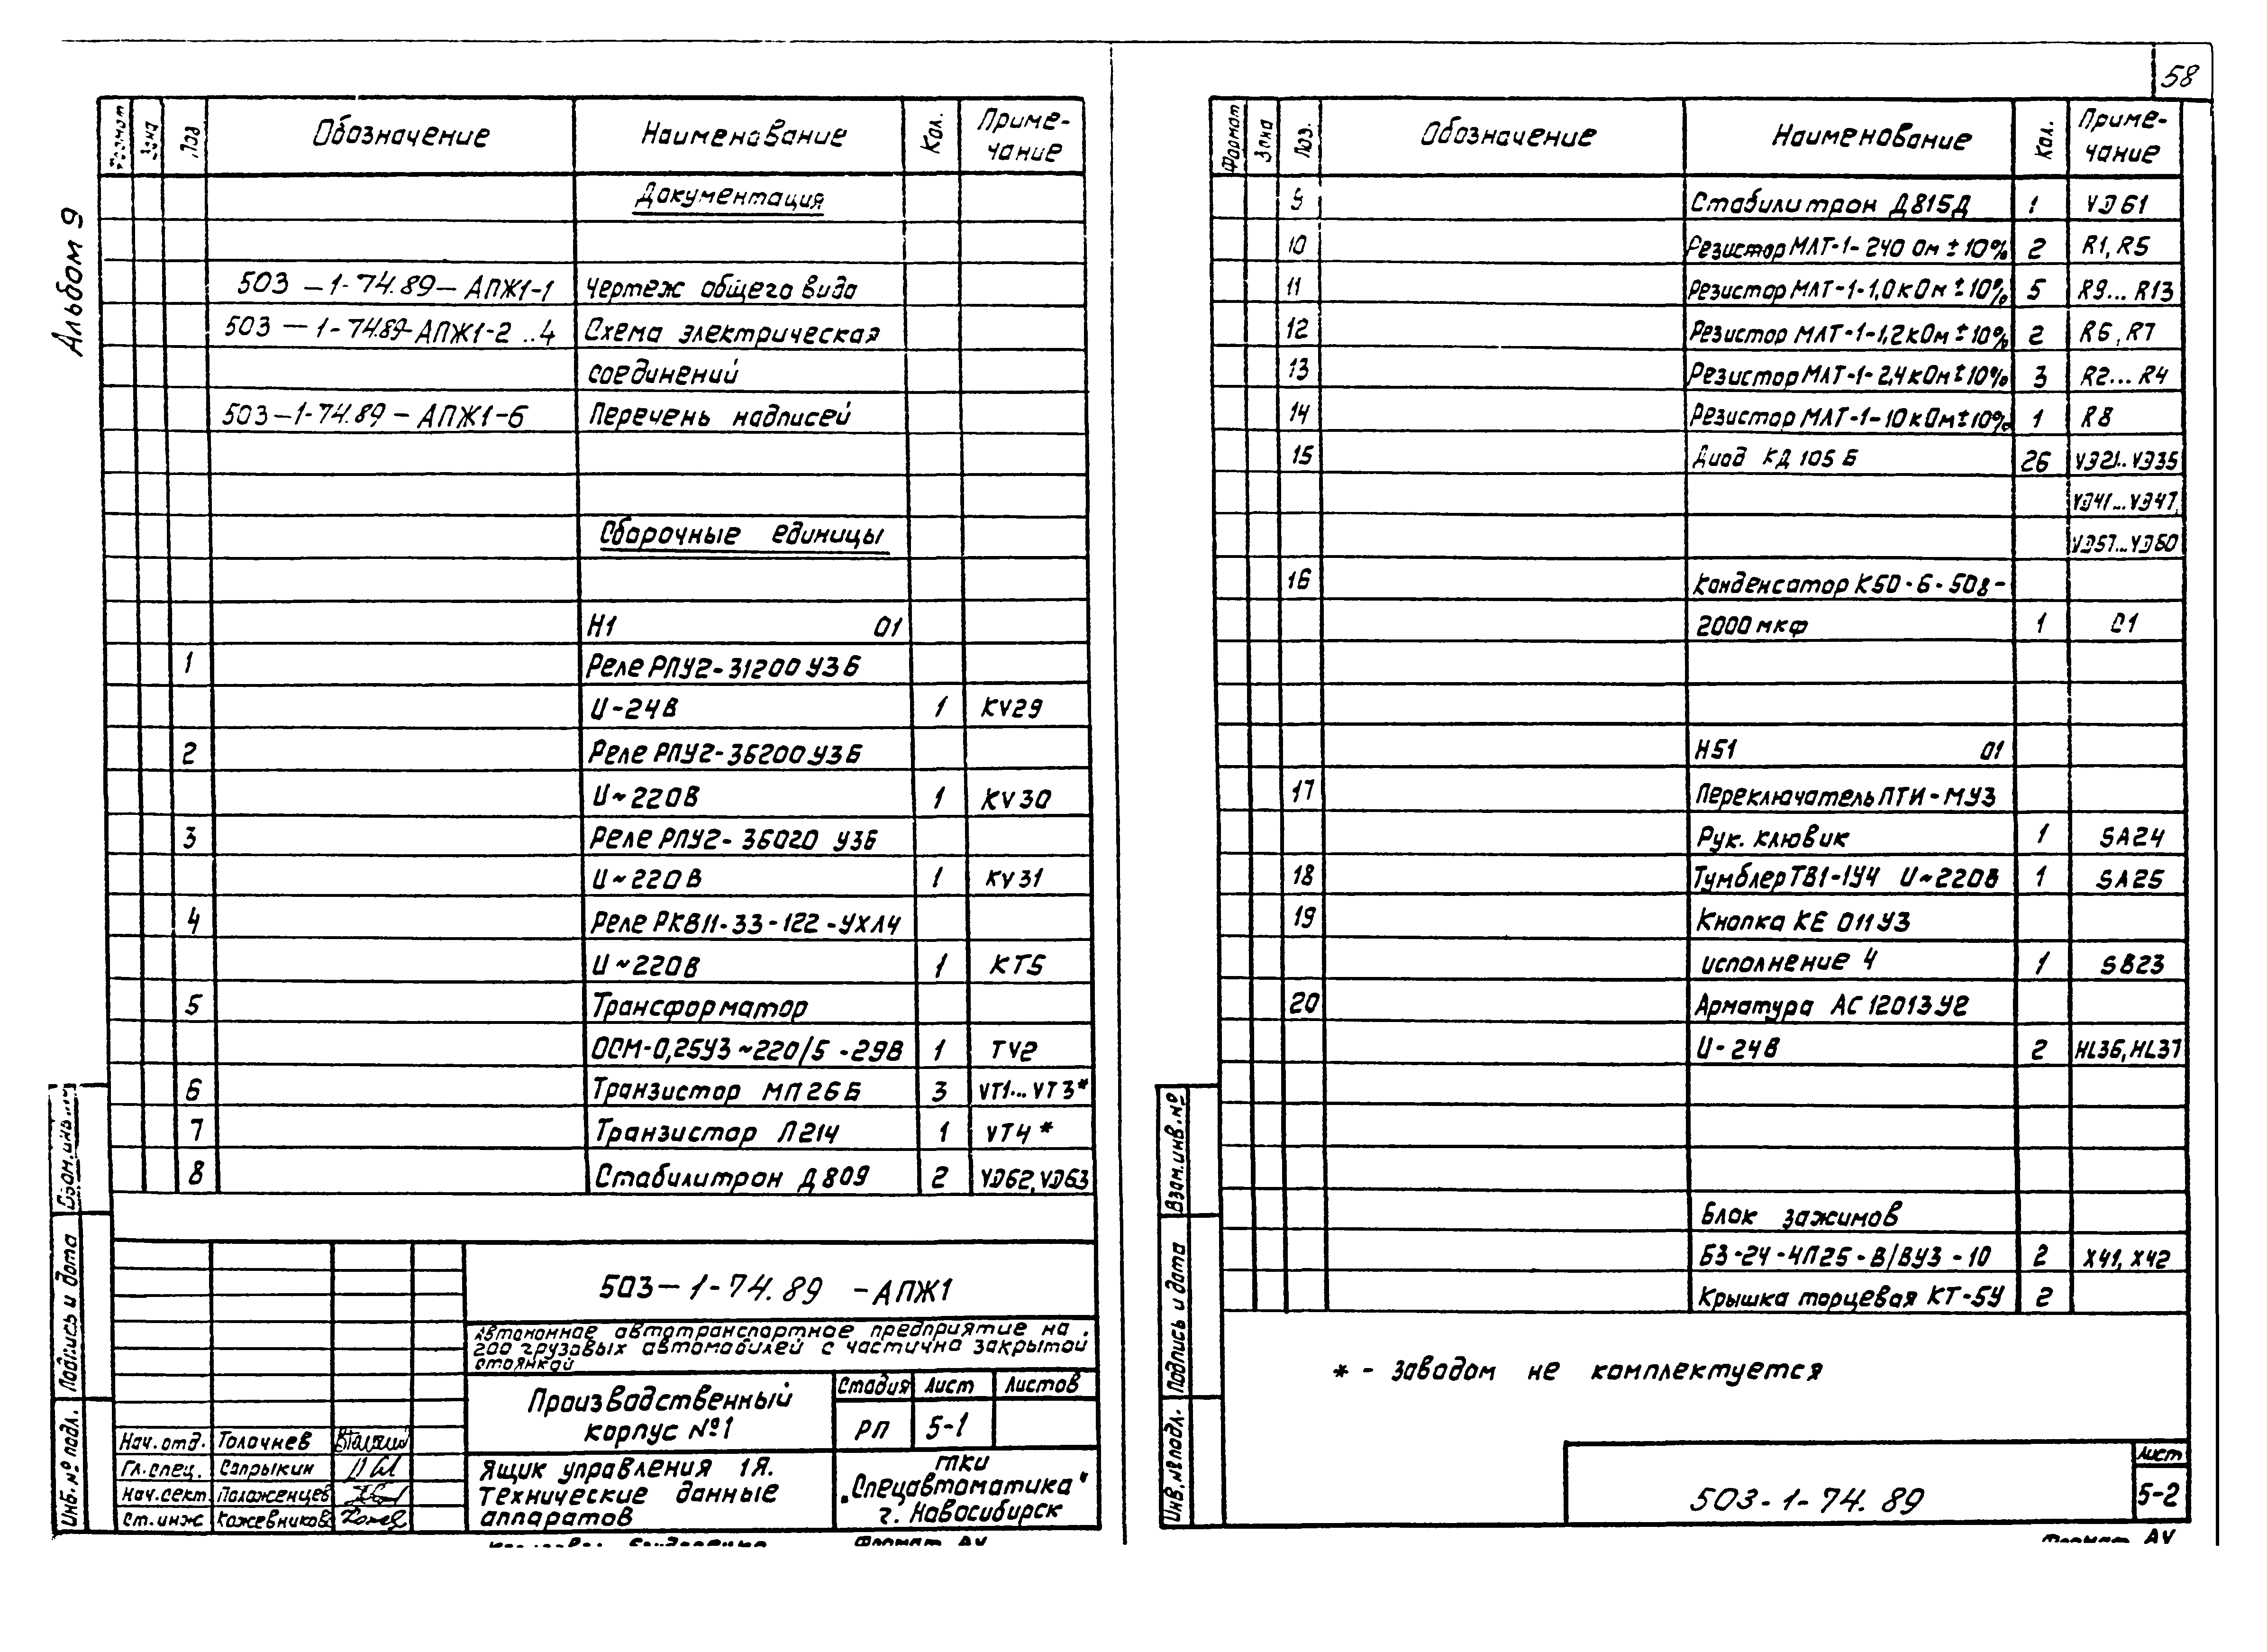 58
Альбом 9
Формат Зона Поз. Обозначение Наименование Кол. Приме-
чание
Документация
503-1-74.89-АПЖ1-1 Чертеж общего вида
503-1-74.89-АПЖ1-2..4 Схема электрическая
соединений
503-1-74.89-АПЖ1-6 Перечень надписей
Сборочные единицы
Н1 01
1 Реле РПУ2-31200 У3Б
U-24В 1 KV29
2 Реле РПУ2-36200 У3Б
U~220В 1 KV30
3 Реле РПУ2-36020 У3Б
U~220В 1 KV31
4 Реле РКВ11-33-122-УХЛ4
U~220В 1 КТ5
5 Трансформатор
ОСМ-0,25У3~220/5-29В 1 TV2
6 Транзистор МП26Б 3 VT1...VT3*
7 Транзистор П214 1 VT4*
8 Стабилитрон Д809 2 VД62,VД63
503-1-74.89 -АПЖ1
Автономное автотранспортное предприятие на
200 грузовых автомобилей с частично закрытой
стоянкой
Производственный
корпус №1
Стадия Лист Листов
РП 5-1
Нач.отд. Толочнев
Гл.спец. Сапрыкин
Нач.сект. Положенцев
Ст.инж Кожевников
Ящик управления 1Я.
Технические данные
аппаратов
ГПКИ
„Спецавтоматика"
г. Новосибирск
Взам.инв.№
Подпись и дата
Инв.№подл.
Формат А4
Формат Зона Поз. Обозначение Наименование Кол. Приме-
чание
9 Стабилитрон Д815Д 1 VД61
10 Резистор МЛТ-1-240 Ом ±10% 2 R1, R5
11 Резистор МЛТ-1-1,0кОм ±10% 5 R9...R13
12 Резистор МЛТ-1-1,2кОм ±10% 2 R6, R7
13 Резистор МЛТ-1-2,4кОм ±10% 3 R2...R4
14 Резистор МЛТ-1-10кОм ±10% 1 R8
15 Диод КД 105 Б 26 VД21..VД35
VД41...VД47,
VД57...VД60
16 Конденсатор К50-6-50В-
2000мкф 1 С1
Н51 01
17 Переключатель ПТИ-МУ3
Рук. клювик 1 SA24
18 Тумблер ТВ1-1У4 U~220В 1 SA25
19 Кнопка КЕ 011У3
исполнение 4 1 SB23
20 Арматура АС 12013У2
U-24В 2 HL36,HL37
Блок зажимов
БЗ-24-4П25-В/ВУ3-10 2 Х41, Х42
Крышка торцевая КТ-5У 2
* - Заводом не комплектуется
Взам.инв.№
Подпись и дата
Инв.№подл.
503-1-74.89
Лист
5-2
Формат А4